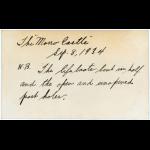 The Morro Castle
Sep. 8, 1934
N.B. The life boats, bent in half
and the open and unopened
port holes.